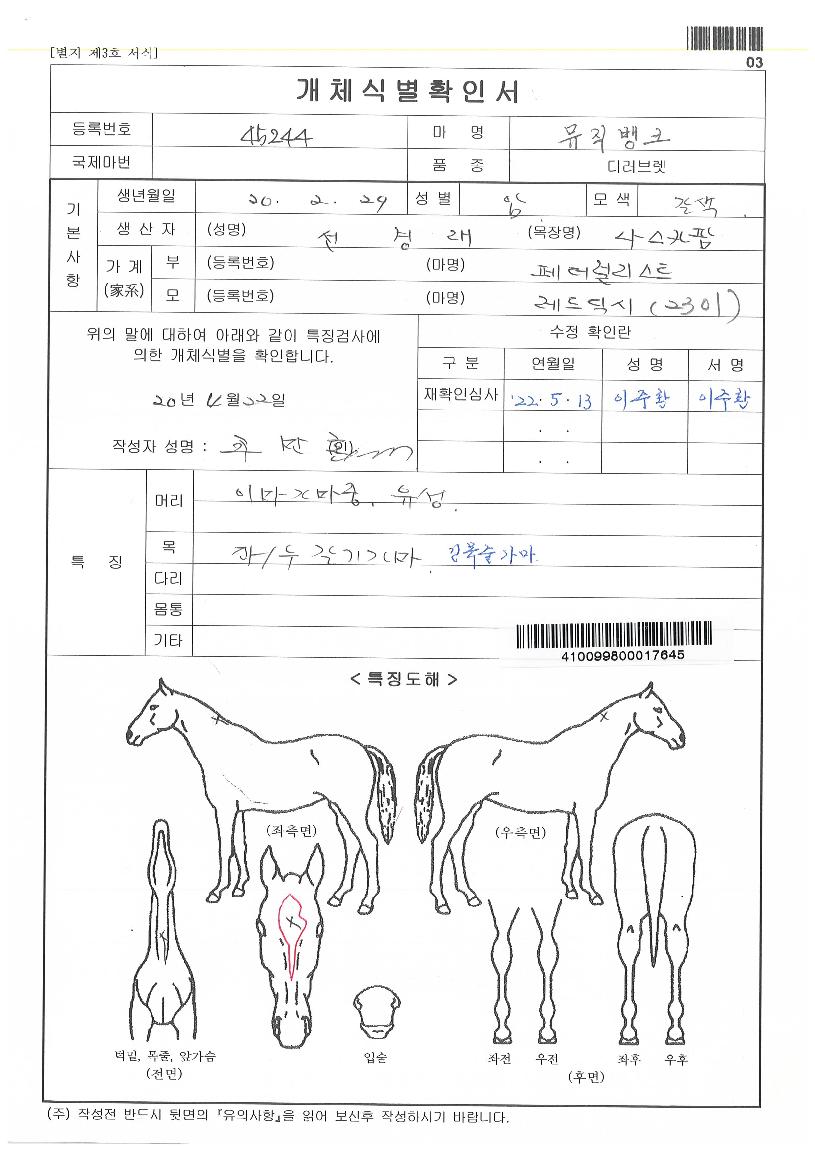 [별지 제3호 서식]
03
개체식별확인서
등록번호 45244 마 명 뮤직뱅크
국제마번 품 종 더러브렛
생년월일 20. 2. 29 성별 암 모색 갈색
기본사항
생 산 자 (성명) 전 경 래 (목장명)
가계(家系) 부 (등록번호) (마명) 페더럴리스트
모 (등록번호) (마명) 레드턱시 (2301)
위의 말에 대하여 아래와 같이 특징검사에
의한 개체식별을 확인합니다.
20년 4월 22일
작성자 성명 : (인)
수정 확인란
구 분 연월일 성 명 서 명
재확인심사 '22. 5. 13 이주환 이주환
. .
. .
특 징
머리 유성.
목 목줄가마
다리
몸통
기타
410099800017645
< 특징도해 >
(좌측면) (우측면)
턱밑, 목줄, 앞가슴
(전면)
입술
좌전 우전 좌후 우후
(후면)
(주) 작성전 반드시 뒷면의 『유의사항』을 읽어 보신후 작성하시기 바랍니다.